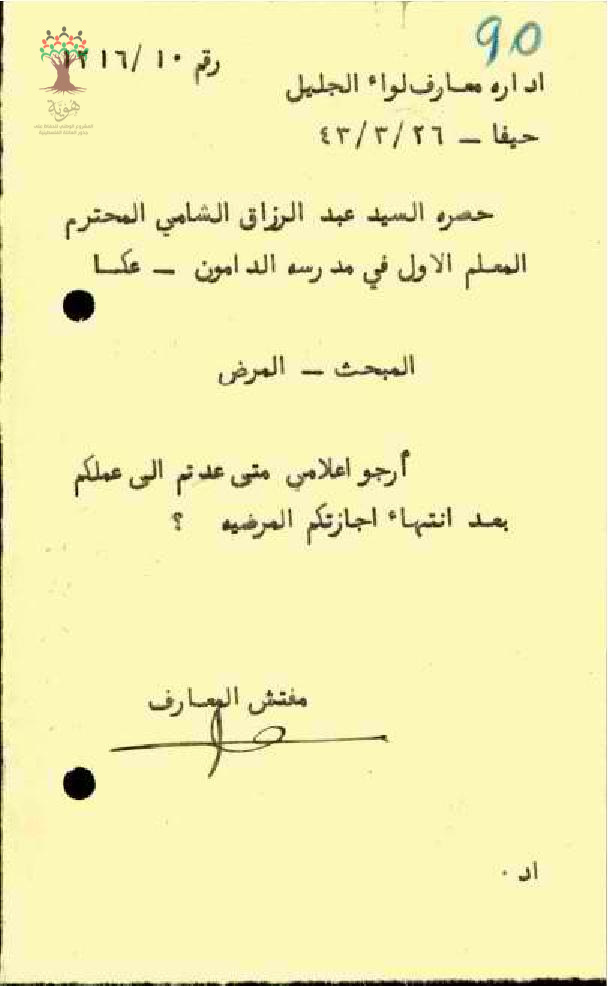 90
رقم ١٠/١٢١٦
اداره معارف لواء الجليل
حيفا – ٤٣/٣/٢٦
حصره السيد عبد الرزاق الشامي المحترم
المعلم الاول في مدرسه الدامون – عكا
المبحث – المرض
أرجو اعلامي متى عدتم الى عملكم
بعد انتهاء اجازتكم المرضيه ؟
مفتش المعارف
اد ٠
هوية